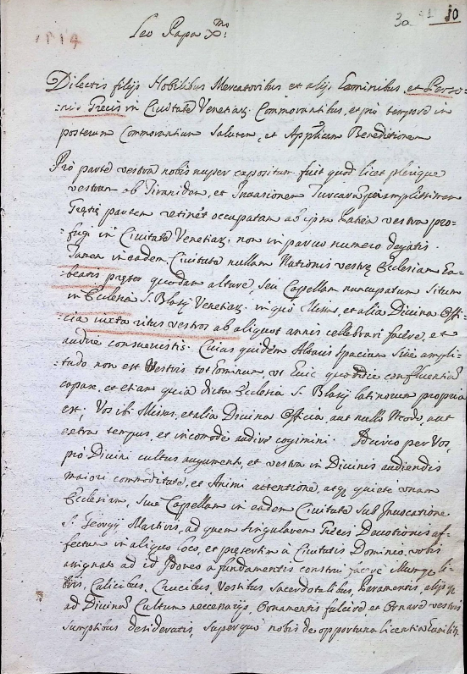 30
10
1514
Leo Papa X.mo
Dilectis filijs Nobilibus Mercatoribus et alijs hominibus, et Perso-
nis Grecis in Civitate Venetiar. Commorantibus, et pro tempore in
posterum Commoraturis Salutem, et Ap'licam Benedictionem
Pro parte vestra nobis nuper expositum fuit quod licet plerique
vestrum ob Tirannidem, et Invasionem Turcarum
partem occupatam ab ipsa Patria vestra pro-
fugi in Civitate Venetiar. non in parvo numero degatis.
Tamen in eadem Civitate nullam Nationis vestrę Ecclesiam ha-
beatis quoddam altare, seu Capellam nuncupatum Situm
in Ecclesia S. Blasij Venetiar. in quo Missas, et alia Divina Offi-
cia iuxta ritus vestros ab aliquot annis celebrari facere, et
audire consuevistis. Cuius quidem Altaris spacium sive ampli-
tudo non est Vestris tot hominum, ut huic quotidie confluentium
copax, et etiam quia dicta Ecclesia S. Blasij latinorum propria
est, Vos ibi Missas, et alia Divina Officia, aut nullo Modo, aut
extra tempus, et incomode audire cogimini. Idcirco per Vos
pro Divini cultus augumento, et vestra in Divinis audiendis
maiori commoditate, et Animi attentione, atq. quiete unam
Ecclesiam, sive Capellam in eadem Civitate sub Invocatione
S. Georgij Martiris, ad quem singularem Devotionis af-
fectum in aliquo loco, et a Civitatis Dominio, vobis
assignato ad id Idoneo à fundamentis construi facere li-
bris, Calicibus, Crucibus, Vestibus Sacerdotalibus, Paramentis, alijsq.
ad Divinum Cultum necessarijs, Ornamentis fulcire et Ornare vestris
sumptibus desideratis, super quo nobis de opportuna licentia